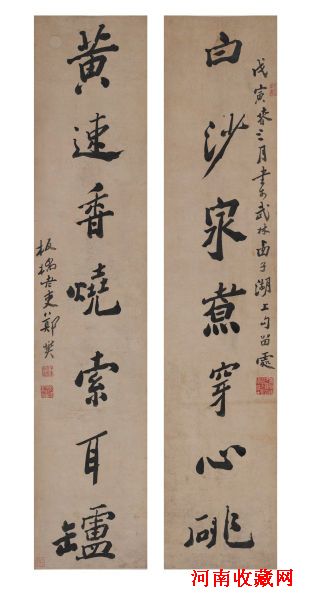 戊寅春三月書於武林西子湖上勾留處
白沙泉煮穿心
黄速香燒索耳罏
板橋鄭燮
河南收藏网